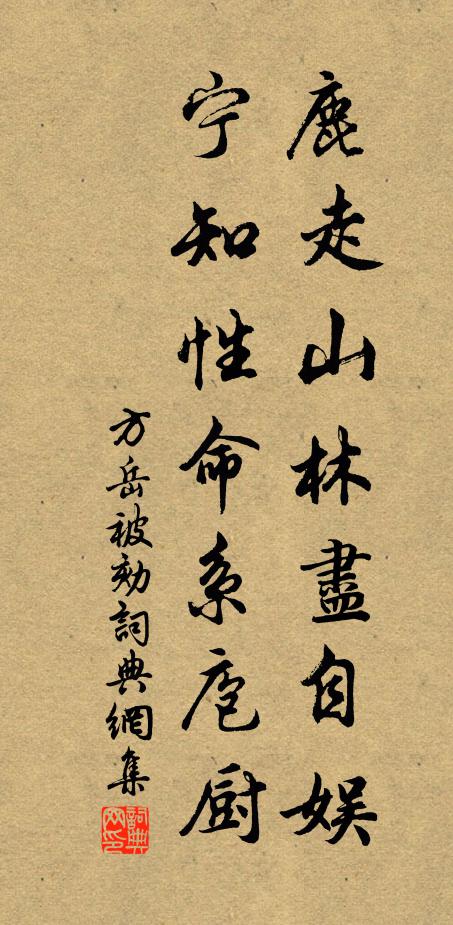 鹿走山林盡自娱
宁知性命系庖厨
方岳被劾詞典網集
詞典网印